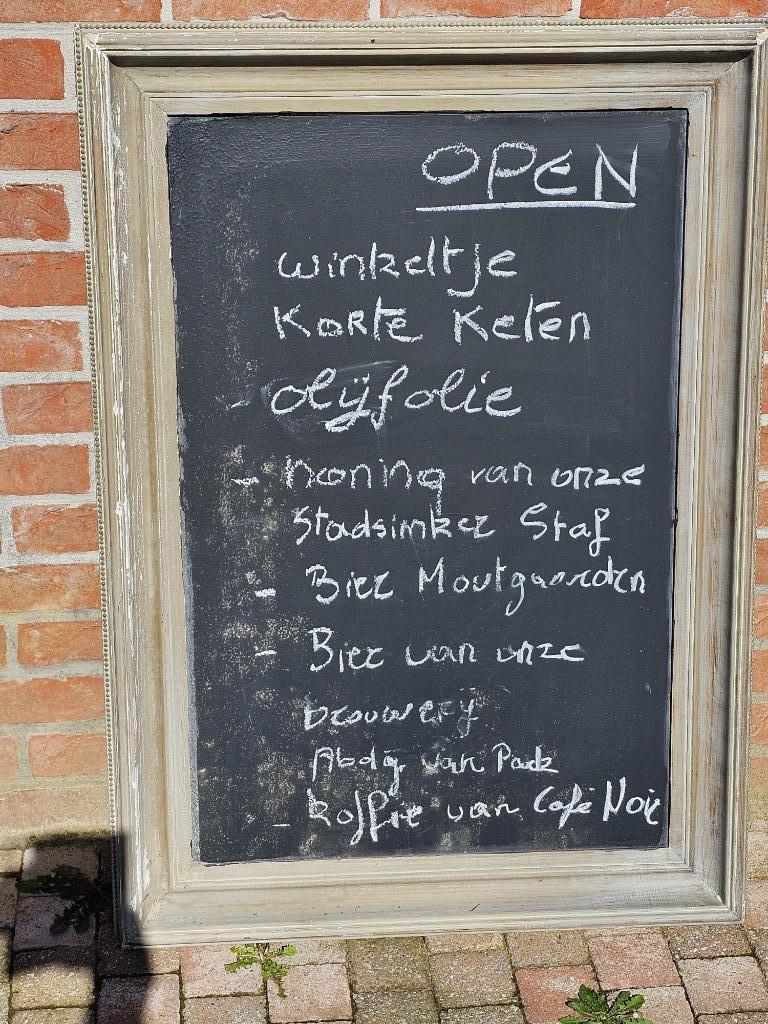 OPEN
winkeltje
Korte Keten
- olijfolie
- Honing van onze
Stadsimker Staf
- Bier Moutgaarden
- Bier van onze
brouwerij
Abdij van Park
- Koffie van Café Noir